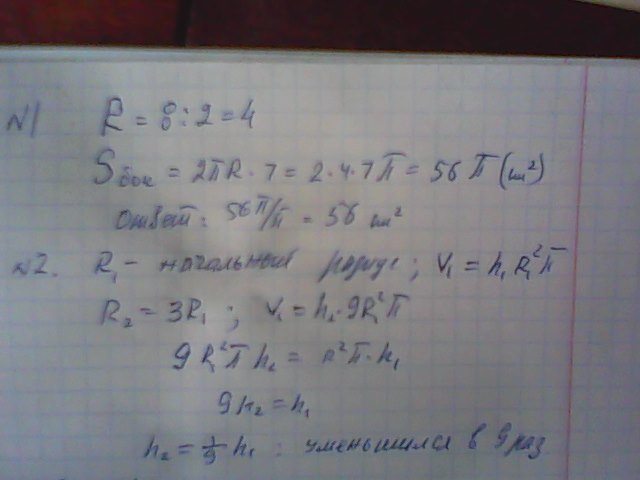 №1 R = 8 : 2 = 4
Sбок = 2πR · 7 = 2 · 4 · 7π = 56π (см²)
ответ: 56π/π = 56 см²
№2. R₁ - начальный радиус; V₁ = h₁R₁²π
R₂ = 3R₁ ; V₁ = h₂ · 9R₁²π
9R₁²πh₂ = R²π · h₁
9h₂ = h₁
h₂ = 1/9 h₁ : уменьшился в 9 раз